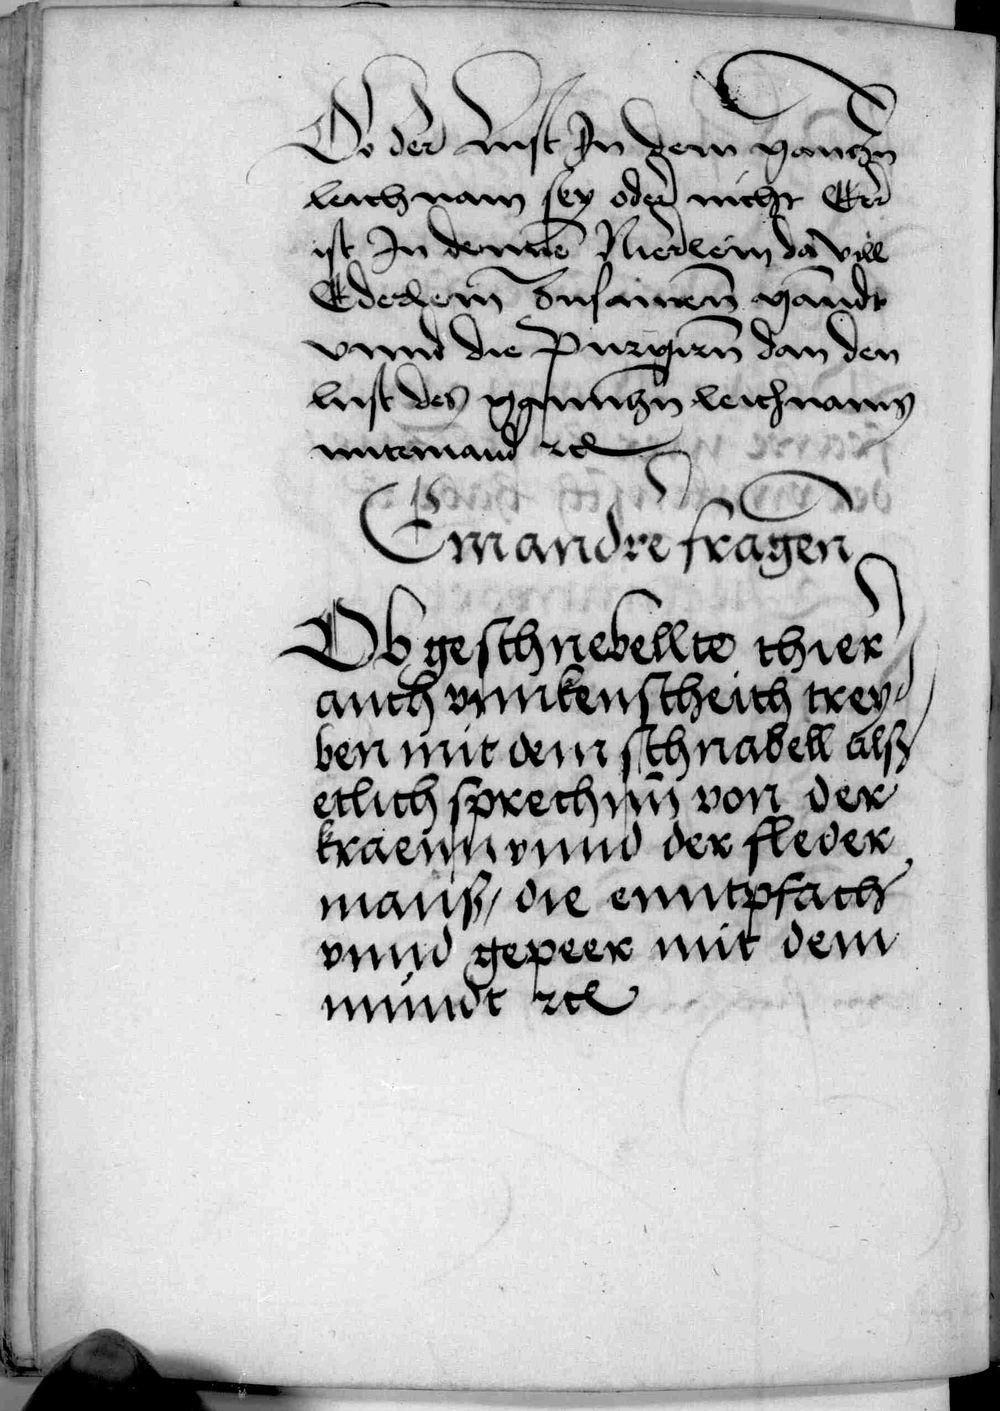 Ob der lust In dem ganczn
leichnam sey oder nicht Er
ist In dennē Nierlein da vill
Ederlein Zusamenn gandt
vnnd die Purgirn dan den
lust des ganczn leichnams
miteinand rc
Ein andre fragen
Ob geschnebellte thier
auch vnnkenscheich trey-
ben mit dem schnabell alß
etlich sprechnn von der
kraeinn vnnd der fleder
mauß / die enntpfach
vnnd gepeer mit dem
mundt rc